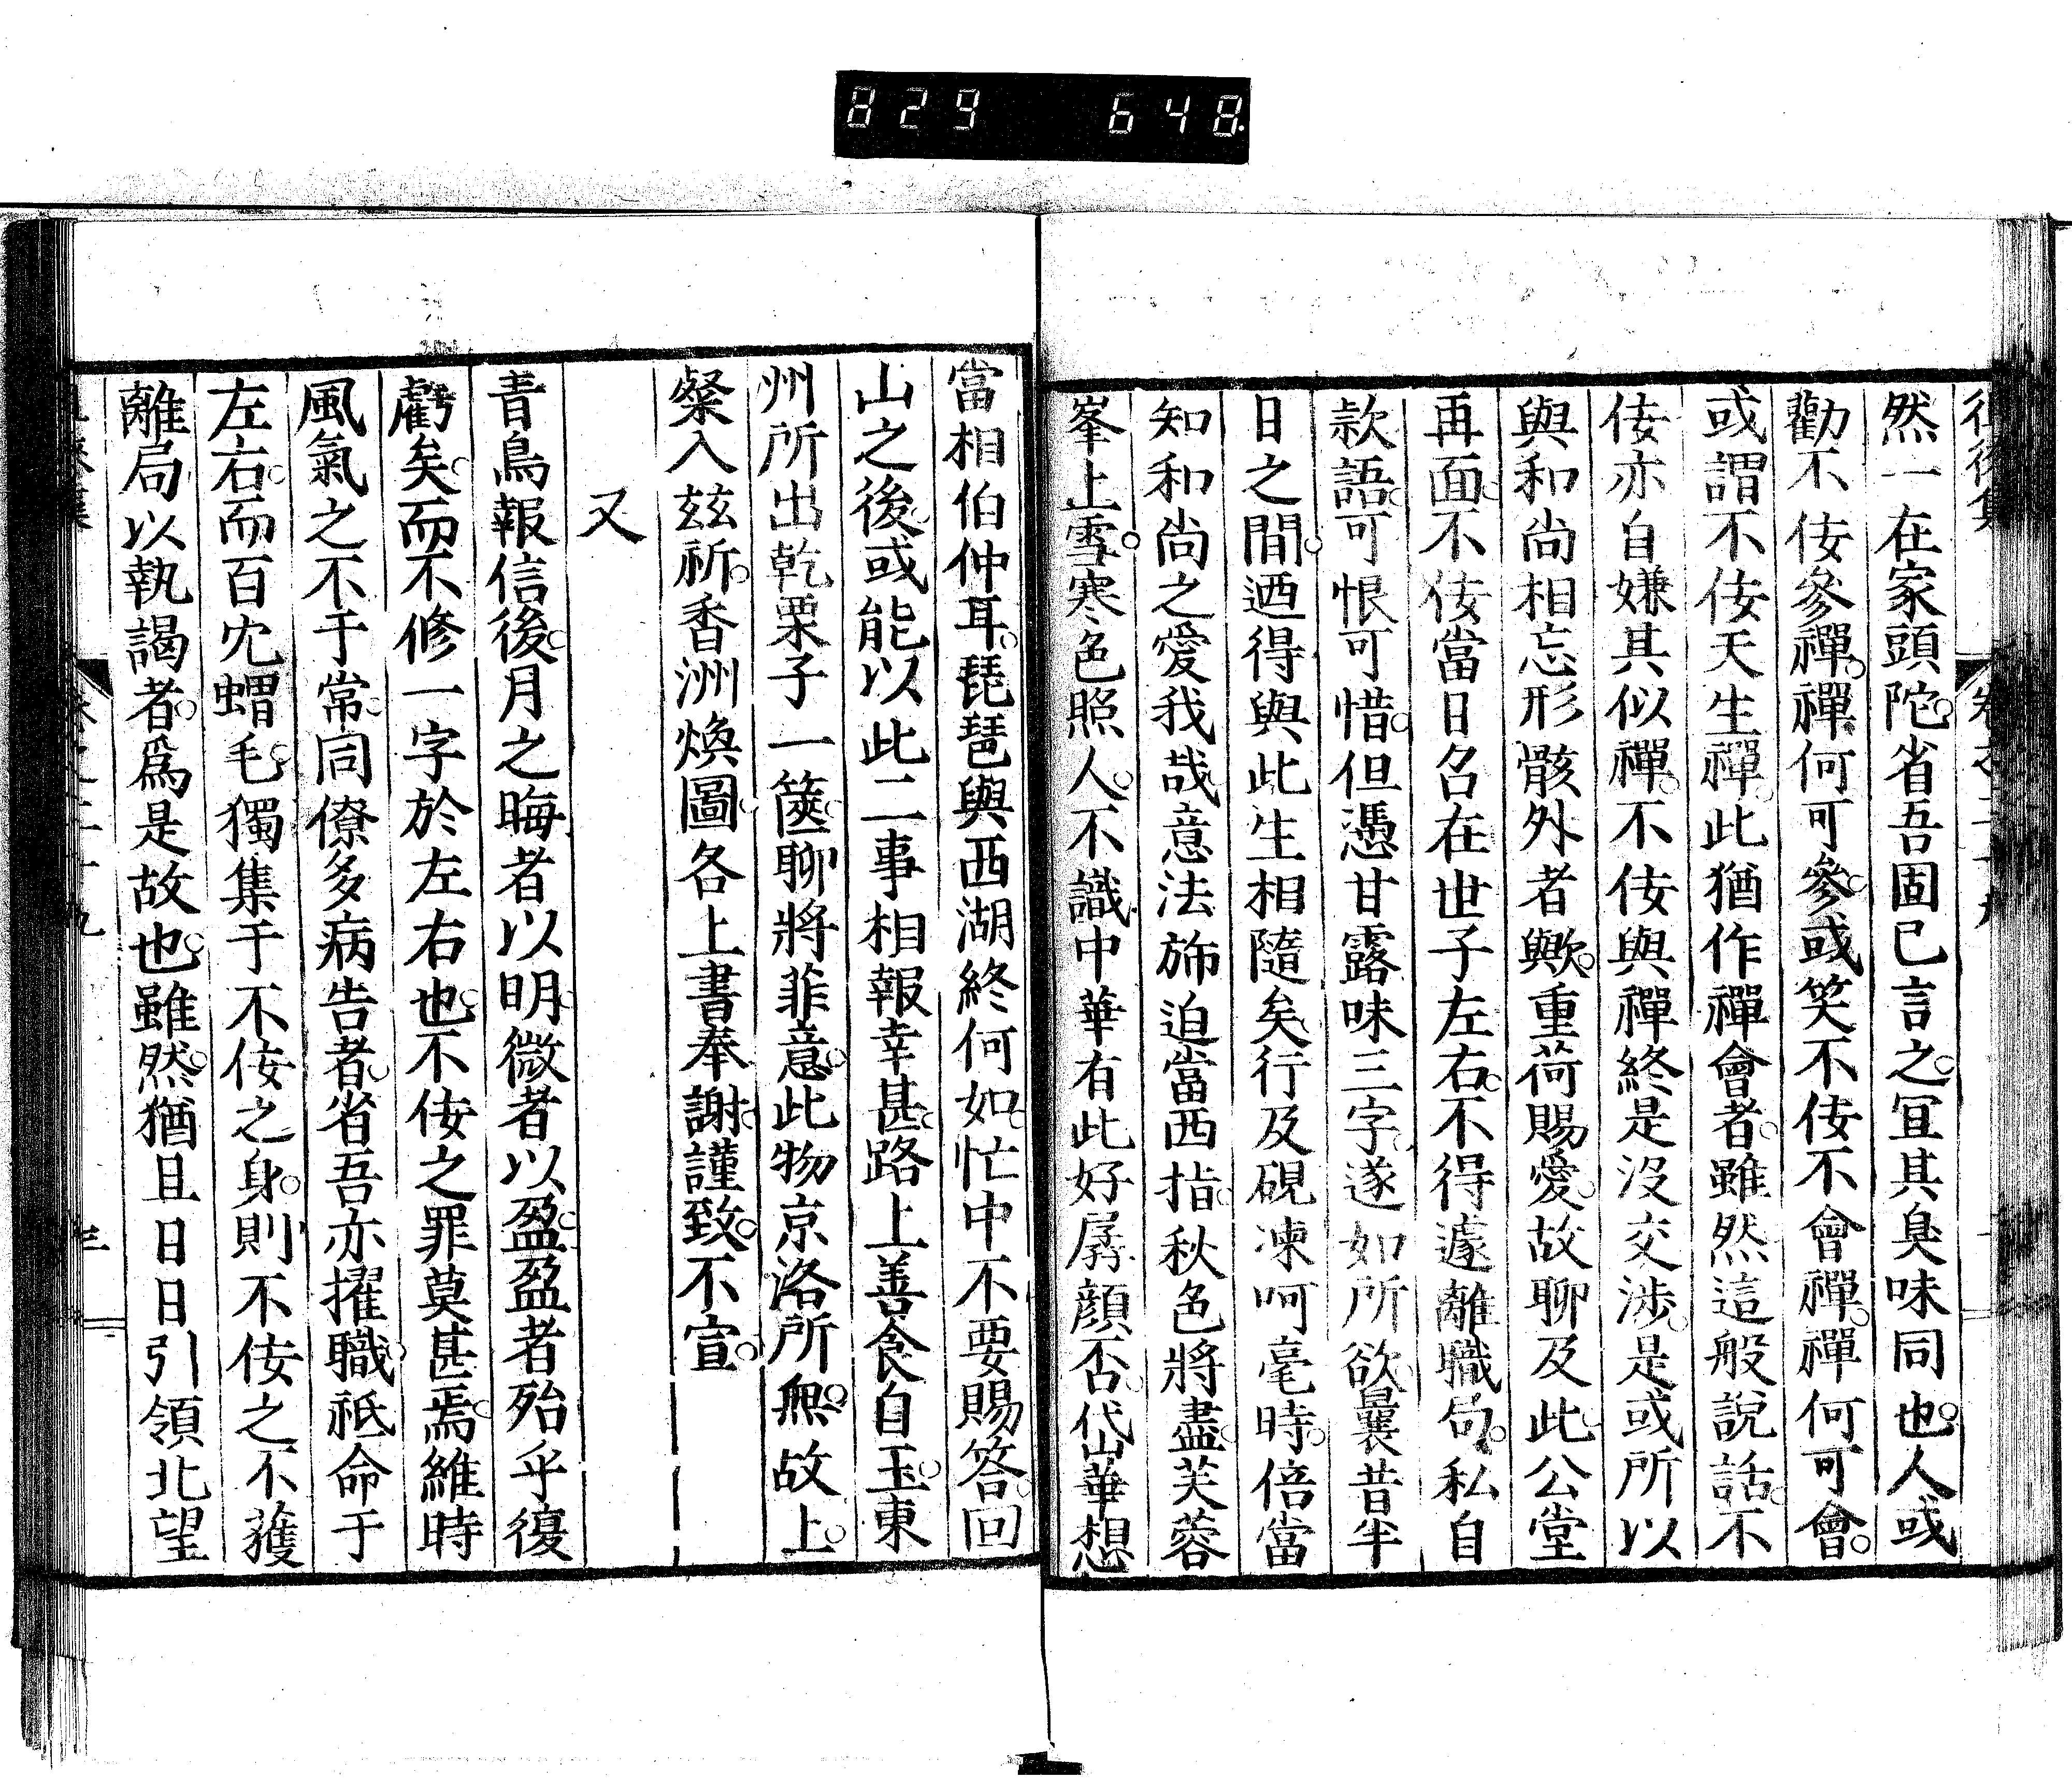 829 648
然一在家頭陀省吾固已言之冝其臭味同也人或
勸不佞參禪禪何可參或笑不佞不會禪禪何可會
或謂不佞天生禪此猶作禪會者雖然這般說話不
佞亦自嫌其似禪不佞與禪終是沒交涉是或所以
與和尚相忘形骸外者歟重荷賜愛故聊及此公堂
再面不佞當日名在世子左右不得遽離職局私自
款語可恨可惜但憑甘露味三字遂如所欲曩昔半
日之間迺得與此生相隨矣行及硯凍呵毫時倍當
知和尚之愛我哉意法斾迫當西指秋色將盡芙蓉
峯上雪寒色照人不識中華有此好孱顏否代崋華想
當相伯仲耳琵琶與西湖終何如忙中不要賜答回
山之後或能以此二事相報幸甚路上善食自玉東
州所出乾栗子一篋聊將菲意此物京洛所無故上
粲入玆祈香洲煥圖各上書奉謝謹致不宣
又
青鳥報信後月之晦者以明微者以盈盈者殆乎復
虧矣而不修一字於左右也不佞之罪莫甚焉維時
風氣之不于常同僚多病告者省吾亦擢職祗命于
左右而百冗蝟毛獨集于不佞之身則不佞之不獲
離局以執謁者爲是故也雖然猶且日日引領北望